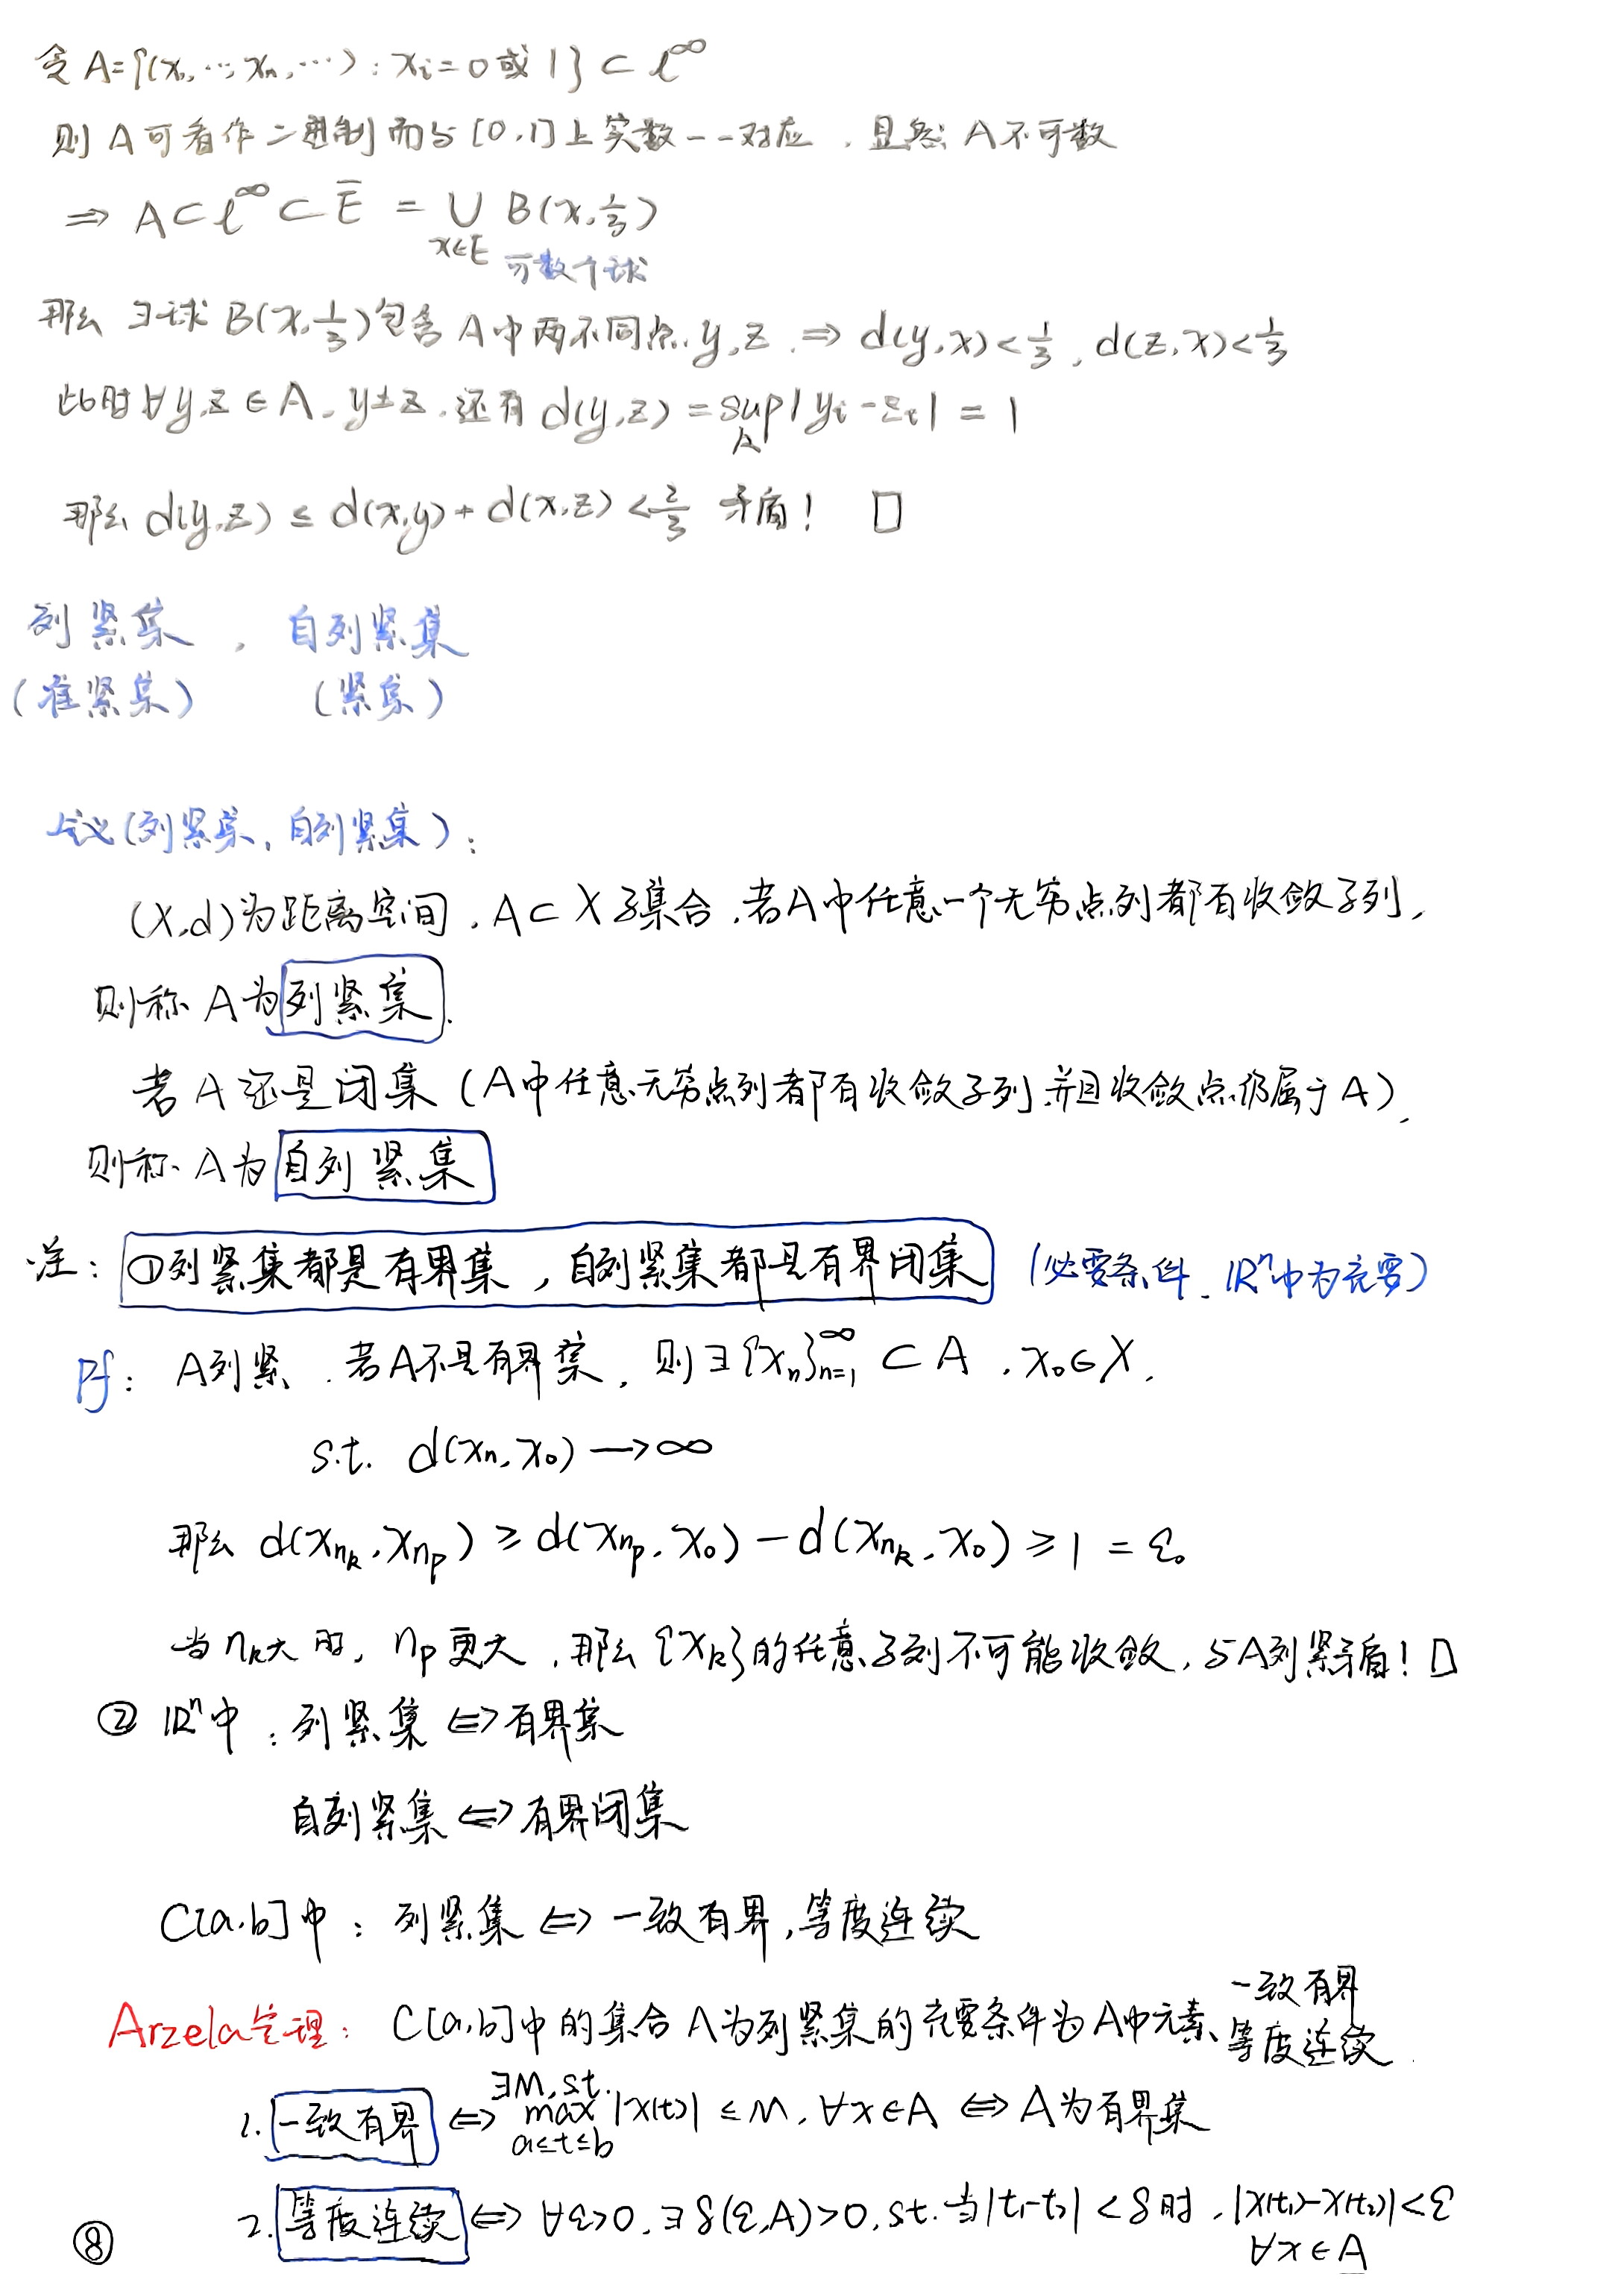 令 A={(x₁,…,xₙ,…): xᵢ=0或1} ⊂ ℓ^∞
则 A 可看作二进制而与[0,1]上实数一一对应，显然 A 不可数
⇒ A⊂ℓ^∞⊂Ē = ∪_{x∈E} B(x,1/3)
可数个球
那么 ∃球 B(x,1/3)包含 A中两不同点 y,z ⇒ d(y,x)<1/3, d(z,x)<1/3
此时∀y,z∈A, y≠z, 还有 d(y,z)=sup_A|yᵢ-zᵢ|=1
那么 d(y,z) ≤ d(x,y)+d(x,z)<2/3 矛盾! □
列紧集, 自列紧集
(准紧集) (紧集)
定义(列紧集,自列紧集):
(X,d)为距离空间, A⊂X子集合,若A中任意一个无穷点列都有收敛子列,
则称 A 为列紧集.
若 A 还是闭集 (A中任意无穷点列都有收敛子列并且收敛点仍属于A),
则称 A 为自列紧集
注: ①列紧集都是有界集,自列紧集都是有界闭集 (必要条件, ℝⁿ中为充要)
Pf: A列紧, 若A不是有界集, 则∃{xₙ}_{n=1}^∞ ⊂ A, x₀∈X,
s.t. d(xₙ,x₀)→∞
那么 d(x_{n_k},x_{n_p}) ≥ d(x_{n_p},x₀)-d(x_{n_k},x₀) ≥ 1 = ε₀
当n_k大时, n_p更大, 那么{x_k}的任意子列不可能收敛, 与A列紧矛盾! □
② ℝⁿ中: 列紧集⇔有界集
自列紧集⇔有界闭集
C[a,b]中: 列紧集⇔一致有界,等度连续
Arzela定理: C[a,b]中的集合A为列紧集的充要条件为A中元素 一致有界 等度连续.
1. 一致有界 ⇔ ∃M, s.t. max_{a≤t≤b}|x(t)| ≤ M, ∀x∈A ⇔ A为有界集
2. 等度连续 ⇔ ∀ε>0, ∃δ(ε,A)>0, s.t. 当|t₁-t₂|<δ时, |x(t₁)-x(t₂)|<ε
∀x∈A
⑧